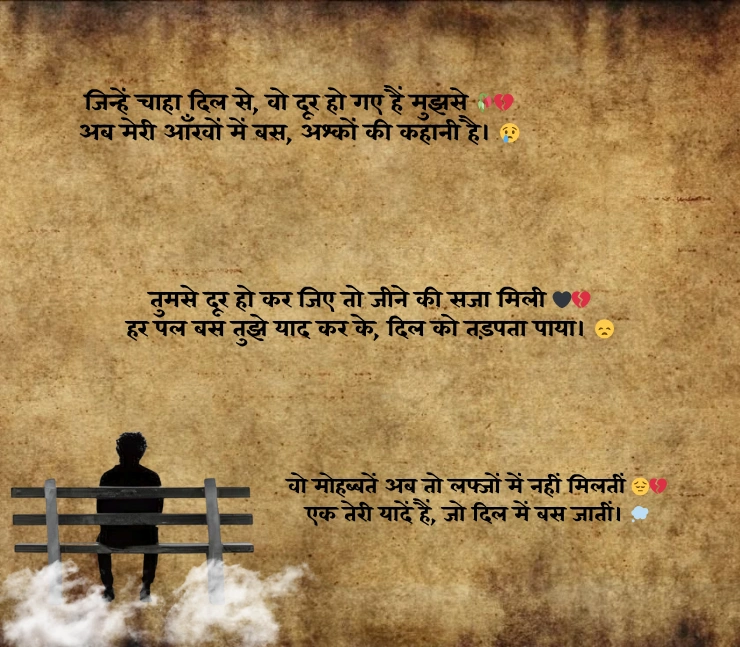 जिन्हें चाहा दिल से, वो दूर हो गए हैं मुझसे 🥀💔
अब मेरी आँखों में बस, अश्कों की कहानी है। 😢
तुमसे दूर हो कर जिए तो जीने की सजा मिली 🖤💔
हर पल बस तुझे याद कर के, दिल को तड़पता पाया। 😞
वो मोहब्बतें अब तो लफ्जों में नहीं मिलतीं 😔💔
एक तेरी यादें हैं, जो दिल में बस जातीं। 💭